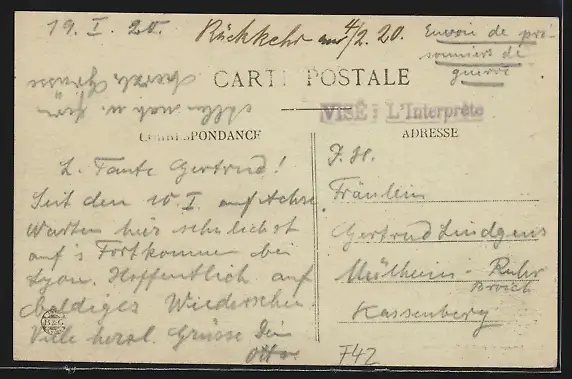 19. I. 20.
Rückkehr am 4/2. 20.
Envoi de pri-
sonniers de
guerre
CARTE POSTALE
VISÉ : L'Interprète
CORRESPONDANCE
ADRESSE
herzl. Grüsse
L. Tante Gertrud!
Seit den 10. I. auf Achse
warten hier sehnlichst
auf's Fortkommen bei
Lyon. Hoffentlich auf
baldiges Wiedersehen.
Viele herzl. Grüsse Dein
Otto.
B&G
F. H.
Fräulein
Gertrud Lindgens
Mülheim - Ruhr
Broich
Kassenberg
F42